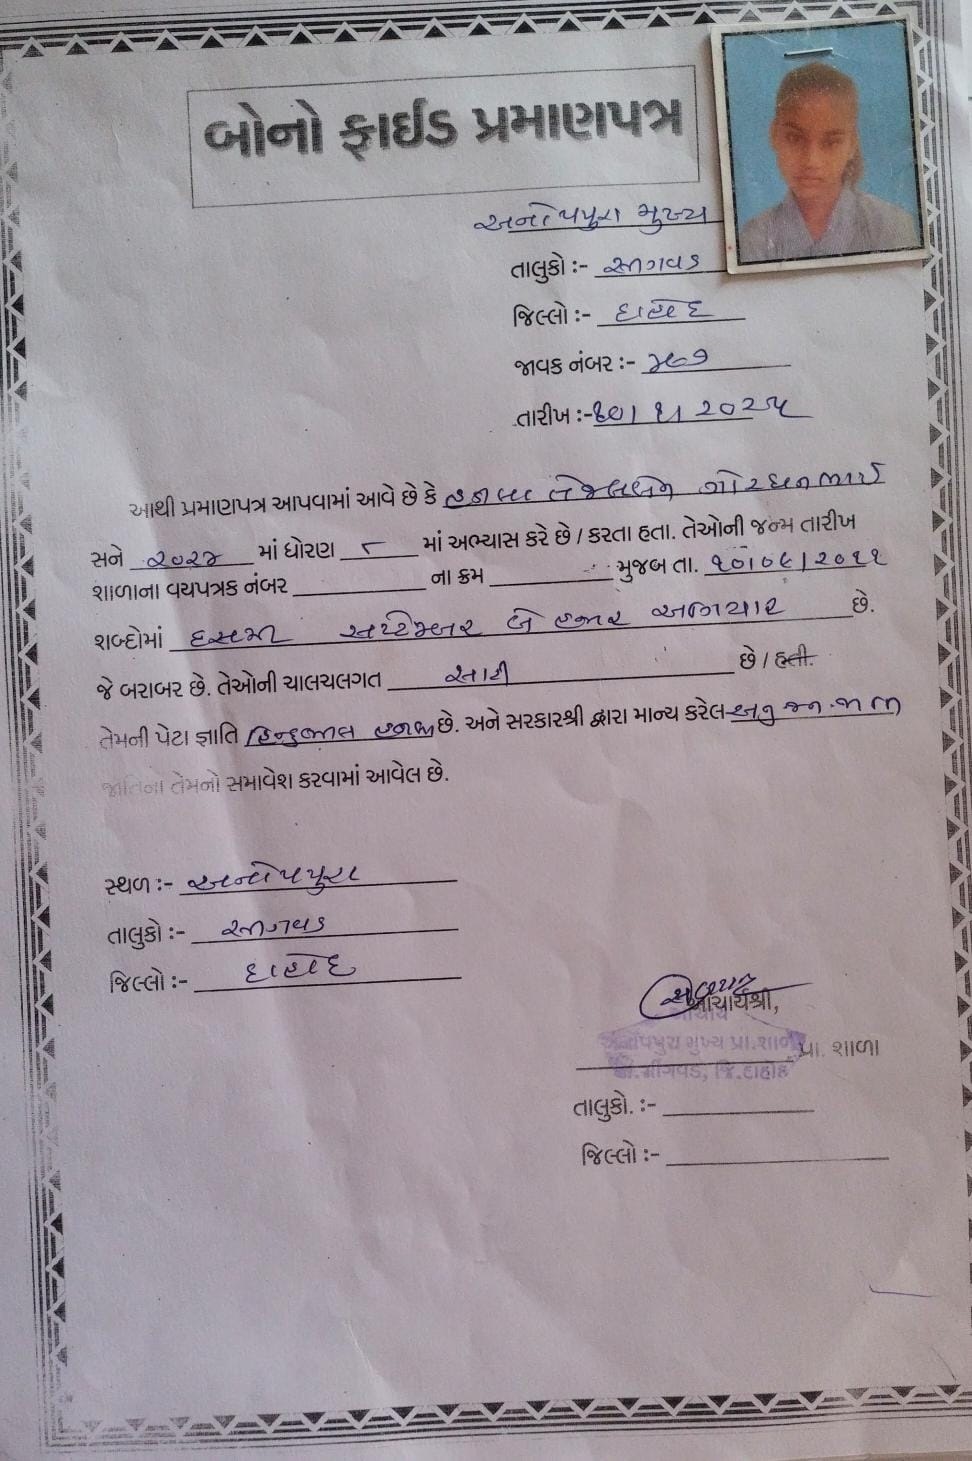 બોનો ફાઈડ પ્રમાણપત્ર
અનોપપુરા મુખ્ય
તાલુકો :- સીંગવડ
જિલ્લો :- દાહોદ
જાવક નંબર :-
તારીખ :- ૨૦૨૫
આથી પ્રમાણપત્ર આપવામાં આવે છે કે ગોરધનભાઈ
સને ૨૦૨૪ માં ધોરણ ૮ માં અભ્યાસ કરે છે / કરતા હતા. તેઓની જન્મ તારીખ
શાળાના વયપત્રક નંબર ના ક્રમ મુજબ તા. ૧૦/૦૯/૨૦૧૧
શબ્દોમાં દસમી સપ્ટેમ્બર બે હજાર અગિયાર છે.
જે બરાબર છે. તેઓની ચાલચલગત સારી છે / હતી.
તેમની પેટા જ્ઞાતિ હિન્દુ ભીલ છે. અને સરકારશ્રી દ્વારા માન્ય કરેલ અનુ.જન.જાતિ
જાતિના તેમનો સમાવેશ કરવામાં આવેલ છે.
સ્થળ :- અનોપપુરા
તાલુકો :- સીંગવડ
જિલ્લો :- દાહોદ
આચાર્યશ્રી,
આચાર્ય
અનોપપુરા મુખ્ય પ્રા.શાળા
પ્રા. શાળા
તા.સીંગવડ, જિ.દાહોદ
તાલુકો. :-
જિલ્લો :-